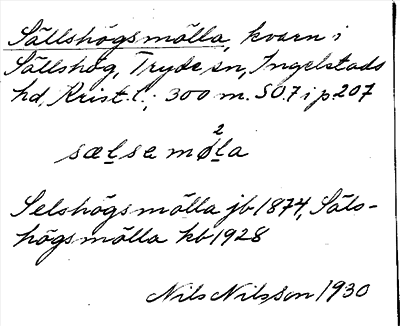 Sällshögsmölla, kvarn i
Sällshög, Tryde sn, Ingelstads
hd, Krist. l.; 300 m. SO. 7 i p. 207
sælsa møla
2
Selshögsmölla jb 1874, Säls-
högsmölla kb 1928
Nils Nilsson 1930